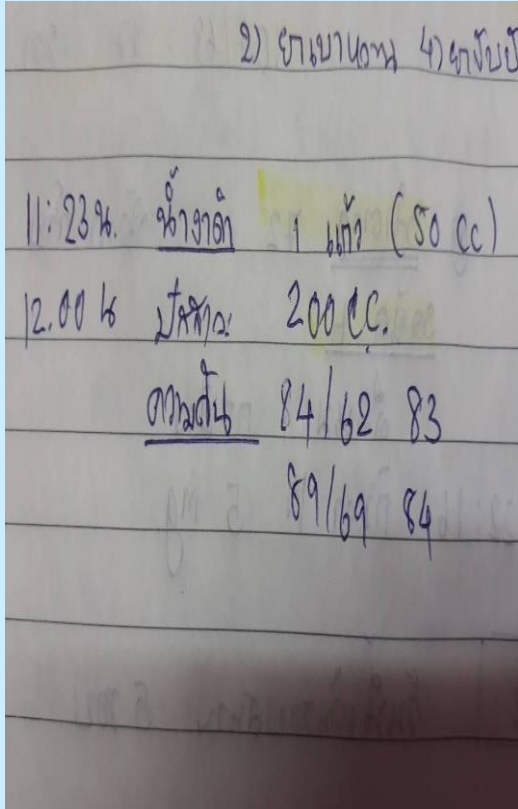 2) ยาเบาหวาน 4) ยาขับปั
11:23 น. น้ำงาดำ 1 แก้ว (50 cc)
12.00 น ปัสสาวะ 200 CC.
ความดัน 84/62 83
89/69 84